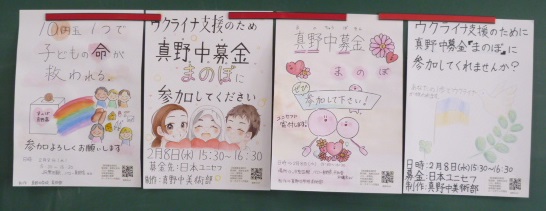 10円玉1つで
子どもの命が
救われる。
まのぼ
参加よろしくお願いします
ウクライナ支援のため
真野中募金
まのぼに
参加してください
2月8日(水)15:30~16:30
募金先:日本ユニセフ
制作:真野中美術部
真野中募金
まのぼ
ぜひ
参加して下さい!
ユニセフに
寄付します
ウクライナ支援のために
真野中募金「まのぼ」に
参加してくれませんか?
日時:2月8日(水)15:30~16:30
募金先:日本ユニセフ
制作:真野中美術部